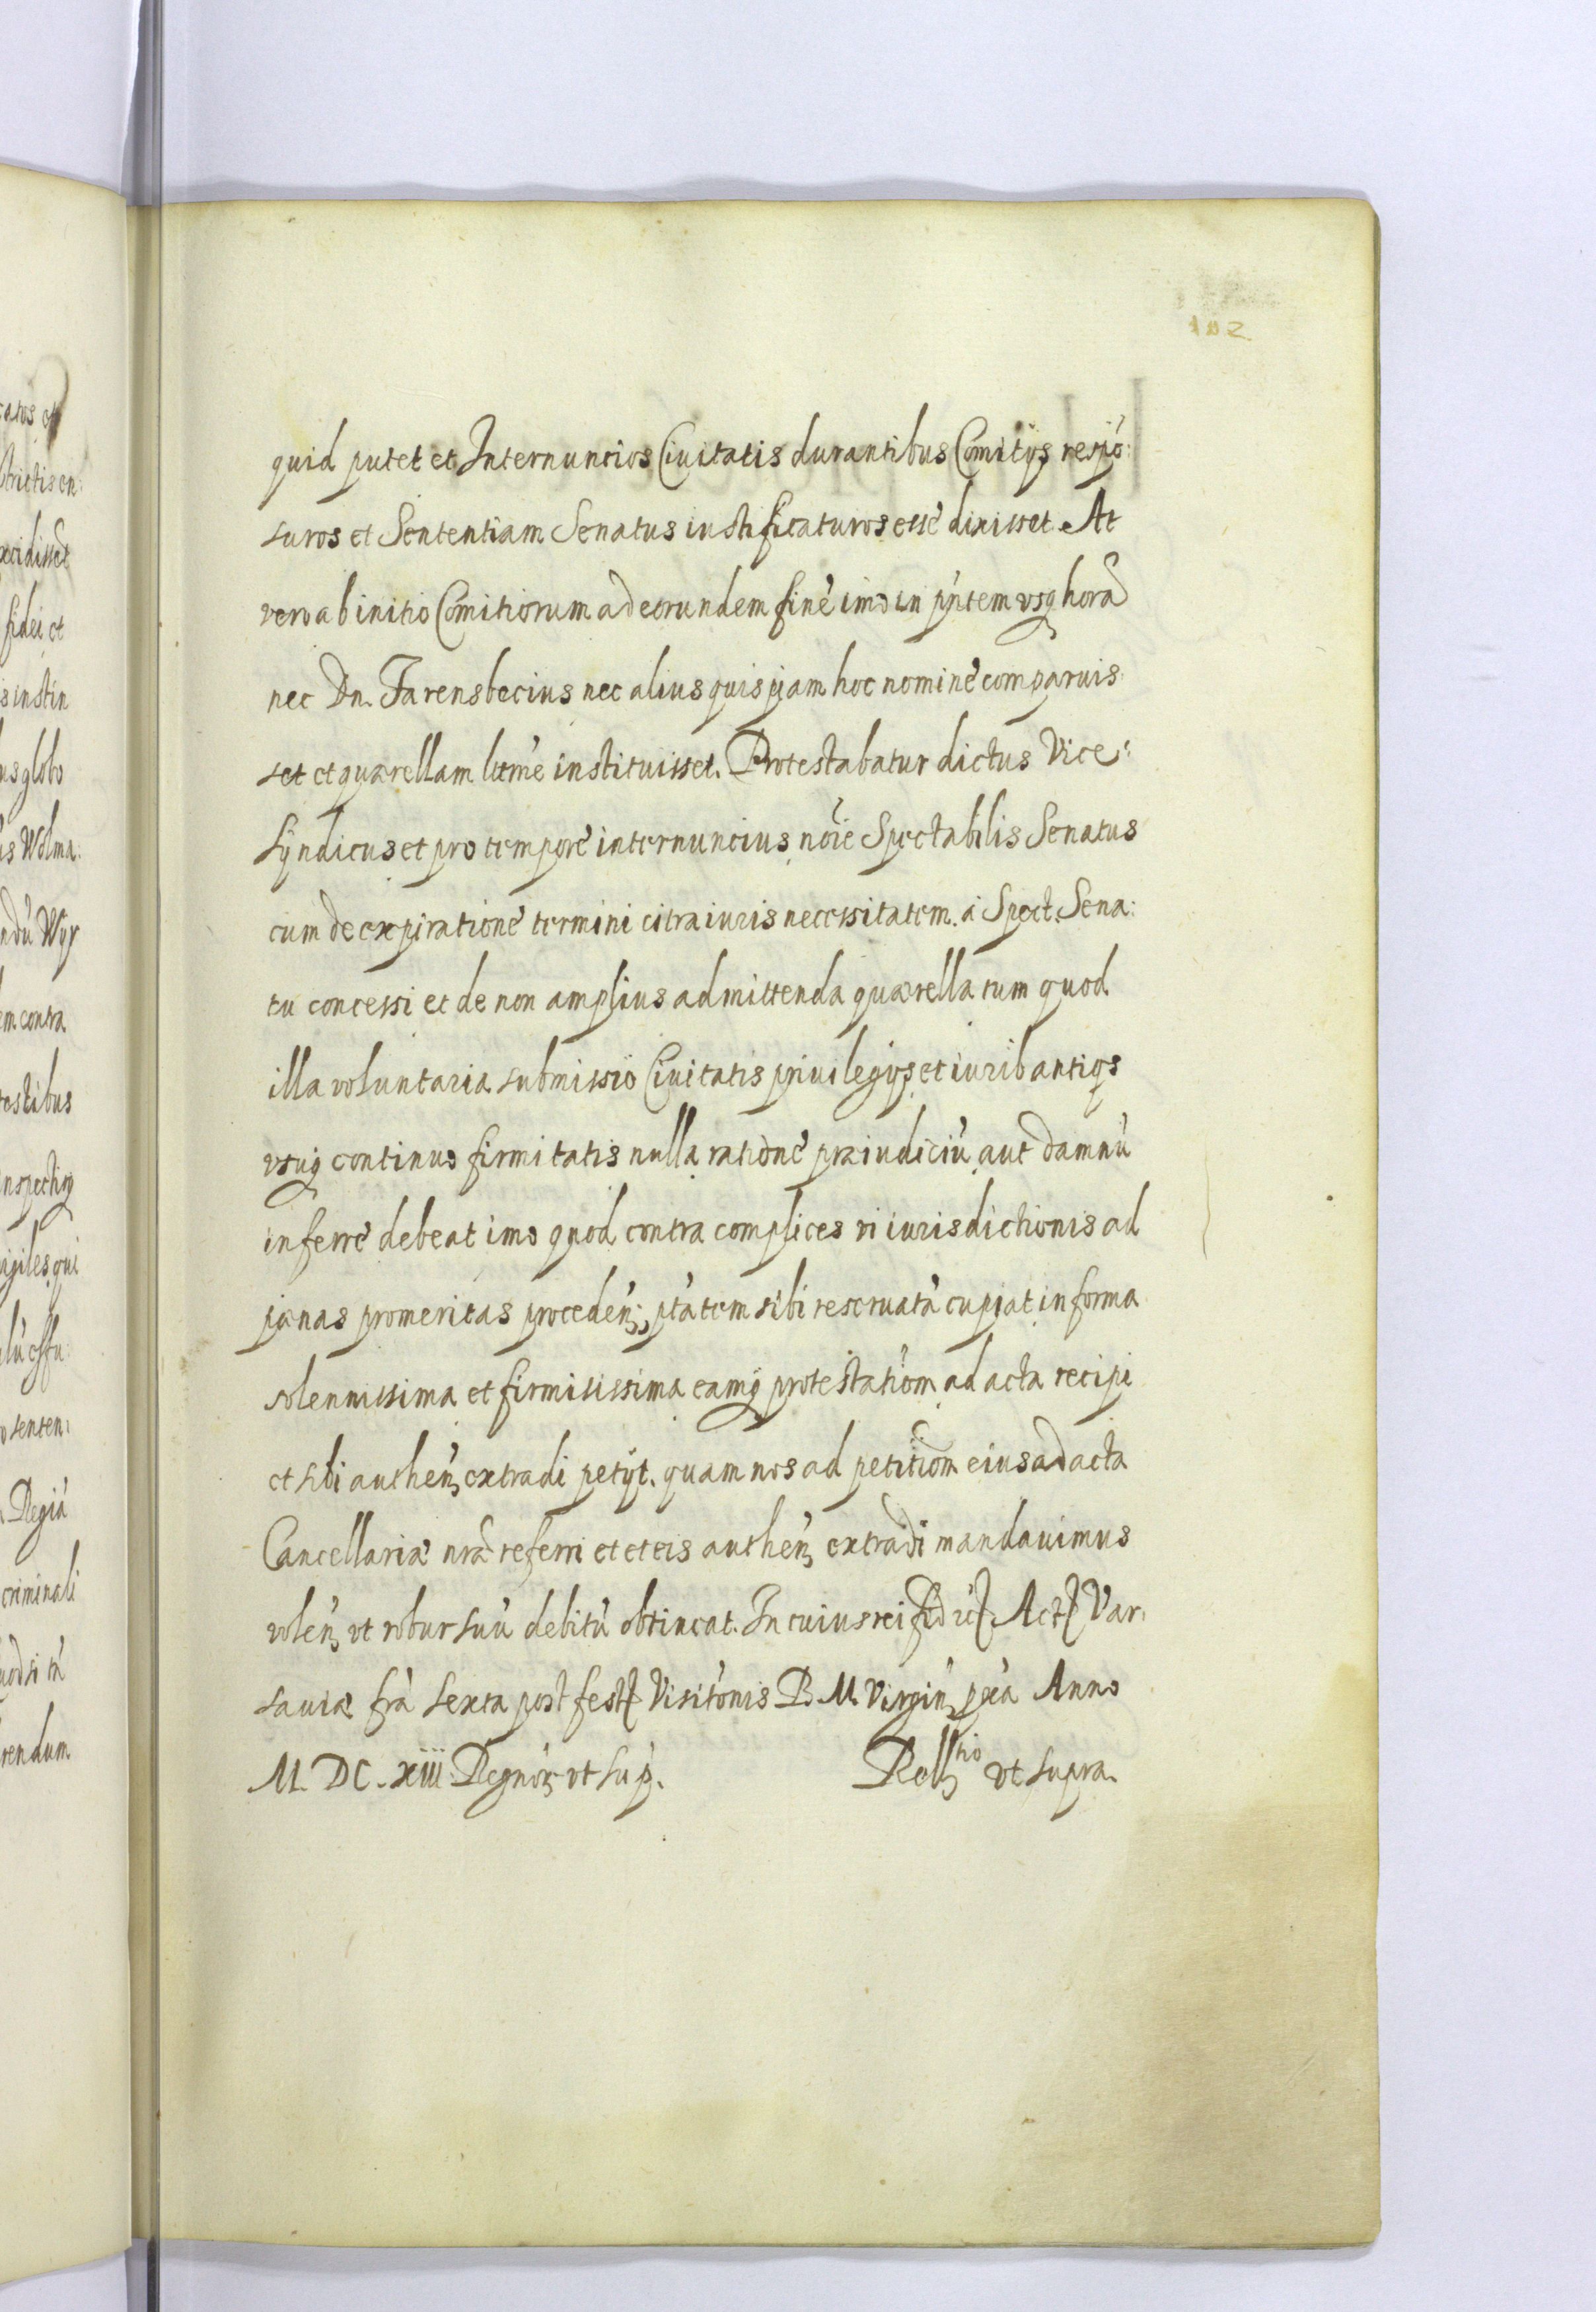 102
quid putet et Internuncios Ciuitatis durantibus Comitijs respõ:
suros et Sententiam Senatus iustificaturos esse dixisset. At
vero ab initio Comitiorum ad eorundem finẽ imo in pñtem vsq horã
nec Dn. Farensbecius nec alius quispiam hoc nominẽ comparuis:
set et quærellam ltmẽ instituisset. Protestabatur dictus Vice:
Syndicus et pro tempore internuncius nõie Spectabilis Senatus
cum de expirationẽ termini citra iuris necessitatem à Spect. Sena:
tu concessi et de non amplius admittenda quærella tum quod
illa voluntaria submissio Ciuitatis priuilegijs et iurib antiqs
vsuq continuo firmitatis nulla rationẽ præiudiciũ aut damnũ
inferrẽ debeat imo quod contra complices vi iurisdictionis ad
pænas promeritas proceden̄, ptãtem sibi reseruatã cupiat in forma
solennissima et firmisissima eamq protestatiõm ad acta recipi
et sibi authen̄ extradi petijt. quam nos ad petitiõm eius ad acta
Cancellariæ nrã referri et eteis authen̄ extradi mandauimus
volen̄ vt robur suũ debitũ obtineat. In cuius rei fid Act Var:
sauiæ frã sexta post fest Visitõnis B. M. Virgin̄ pxã Anno
M. DC. xiii Regnõr vt sup. Rell tio vt supra.
catos et
strictis en:
fidei et
is instin
us globo
us Wolma:
em contra
testibus
nspectiq
igiles qui
senten:
Regiã
criminali
rendum